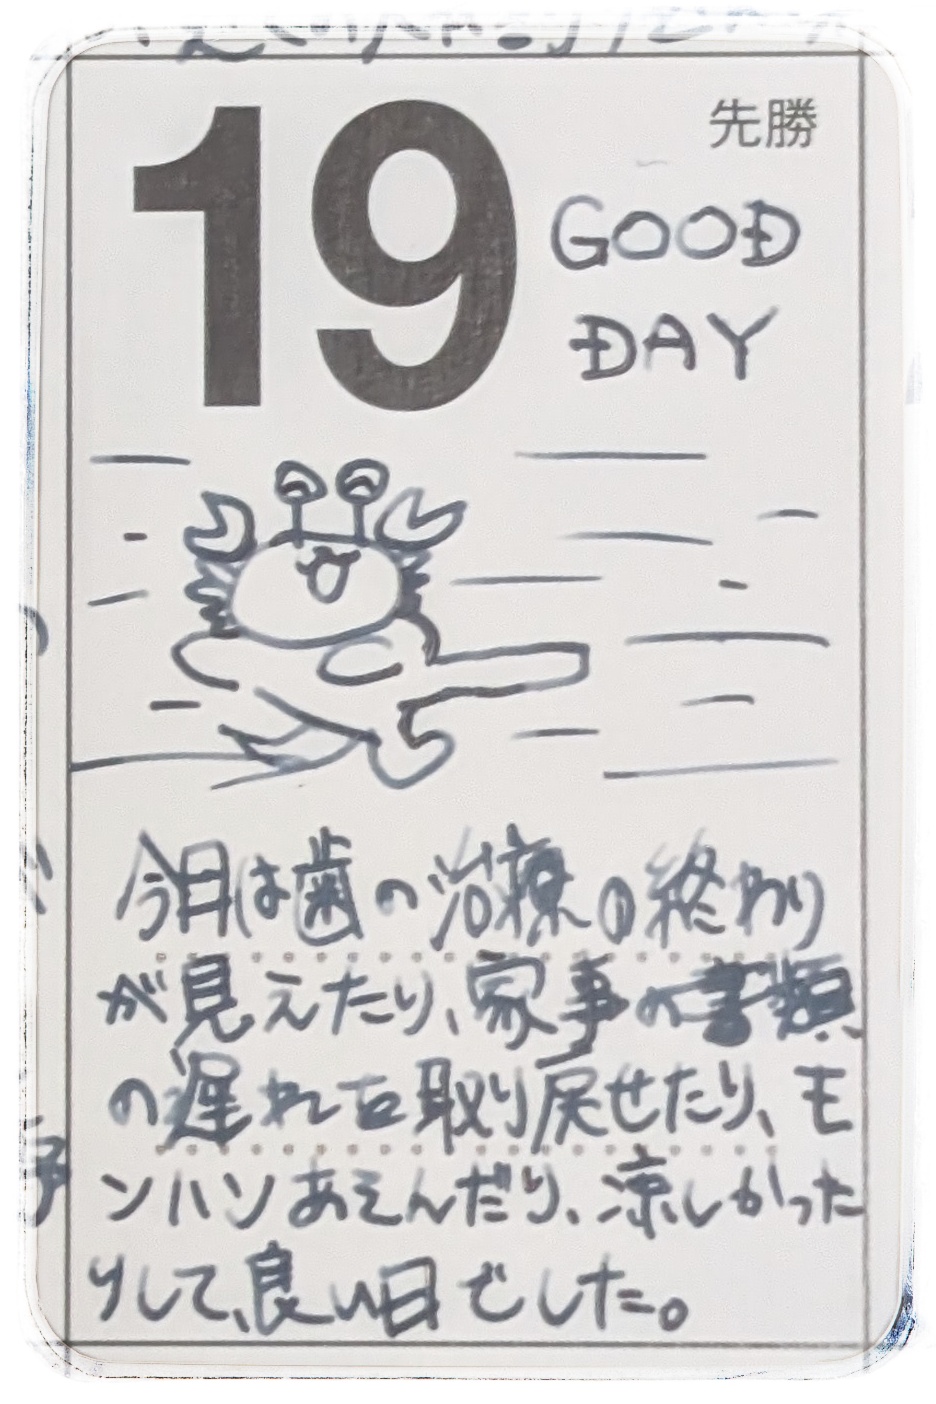 19
先勝
GOOD
DAY
今日は歯の治療の終わり
が見えたり、家事や書類
の遅れを取り戻せたり、モ
ンハンあそんだり、涼しかった
りして、良い日でした。